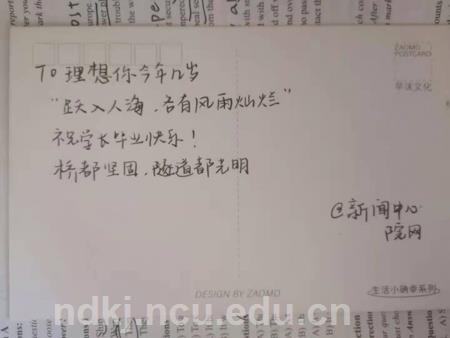 TO 理想你今年几岁
“跃入人海，各有风雨灿烂”
祝学长毕业快乐！
桥都坚固，隧道都光明
@新闻中心
院网
ZAOMO
POSTCARD
早沫文化
DESIGN BY ZAOMO
生活小确幸系列
ndki.ncu.edu.cn